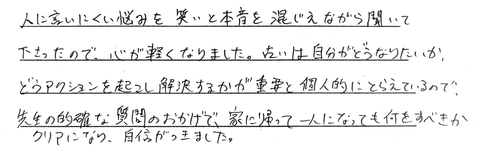 人に言いにくい悩みを 笑いと本音を混じえながら聞いて
下さったので、心が軽くなりました。占いは自分がどうなりたいか、
どうアクションを起こし解決するかが重要と個人的にとらえているので、
先生の的確な質問のおかげで、家に帰って一人になっても何をすべきか
クリアになり、自信がつきました。